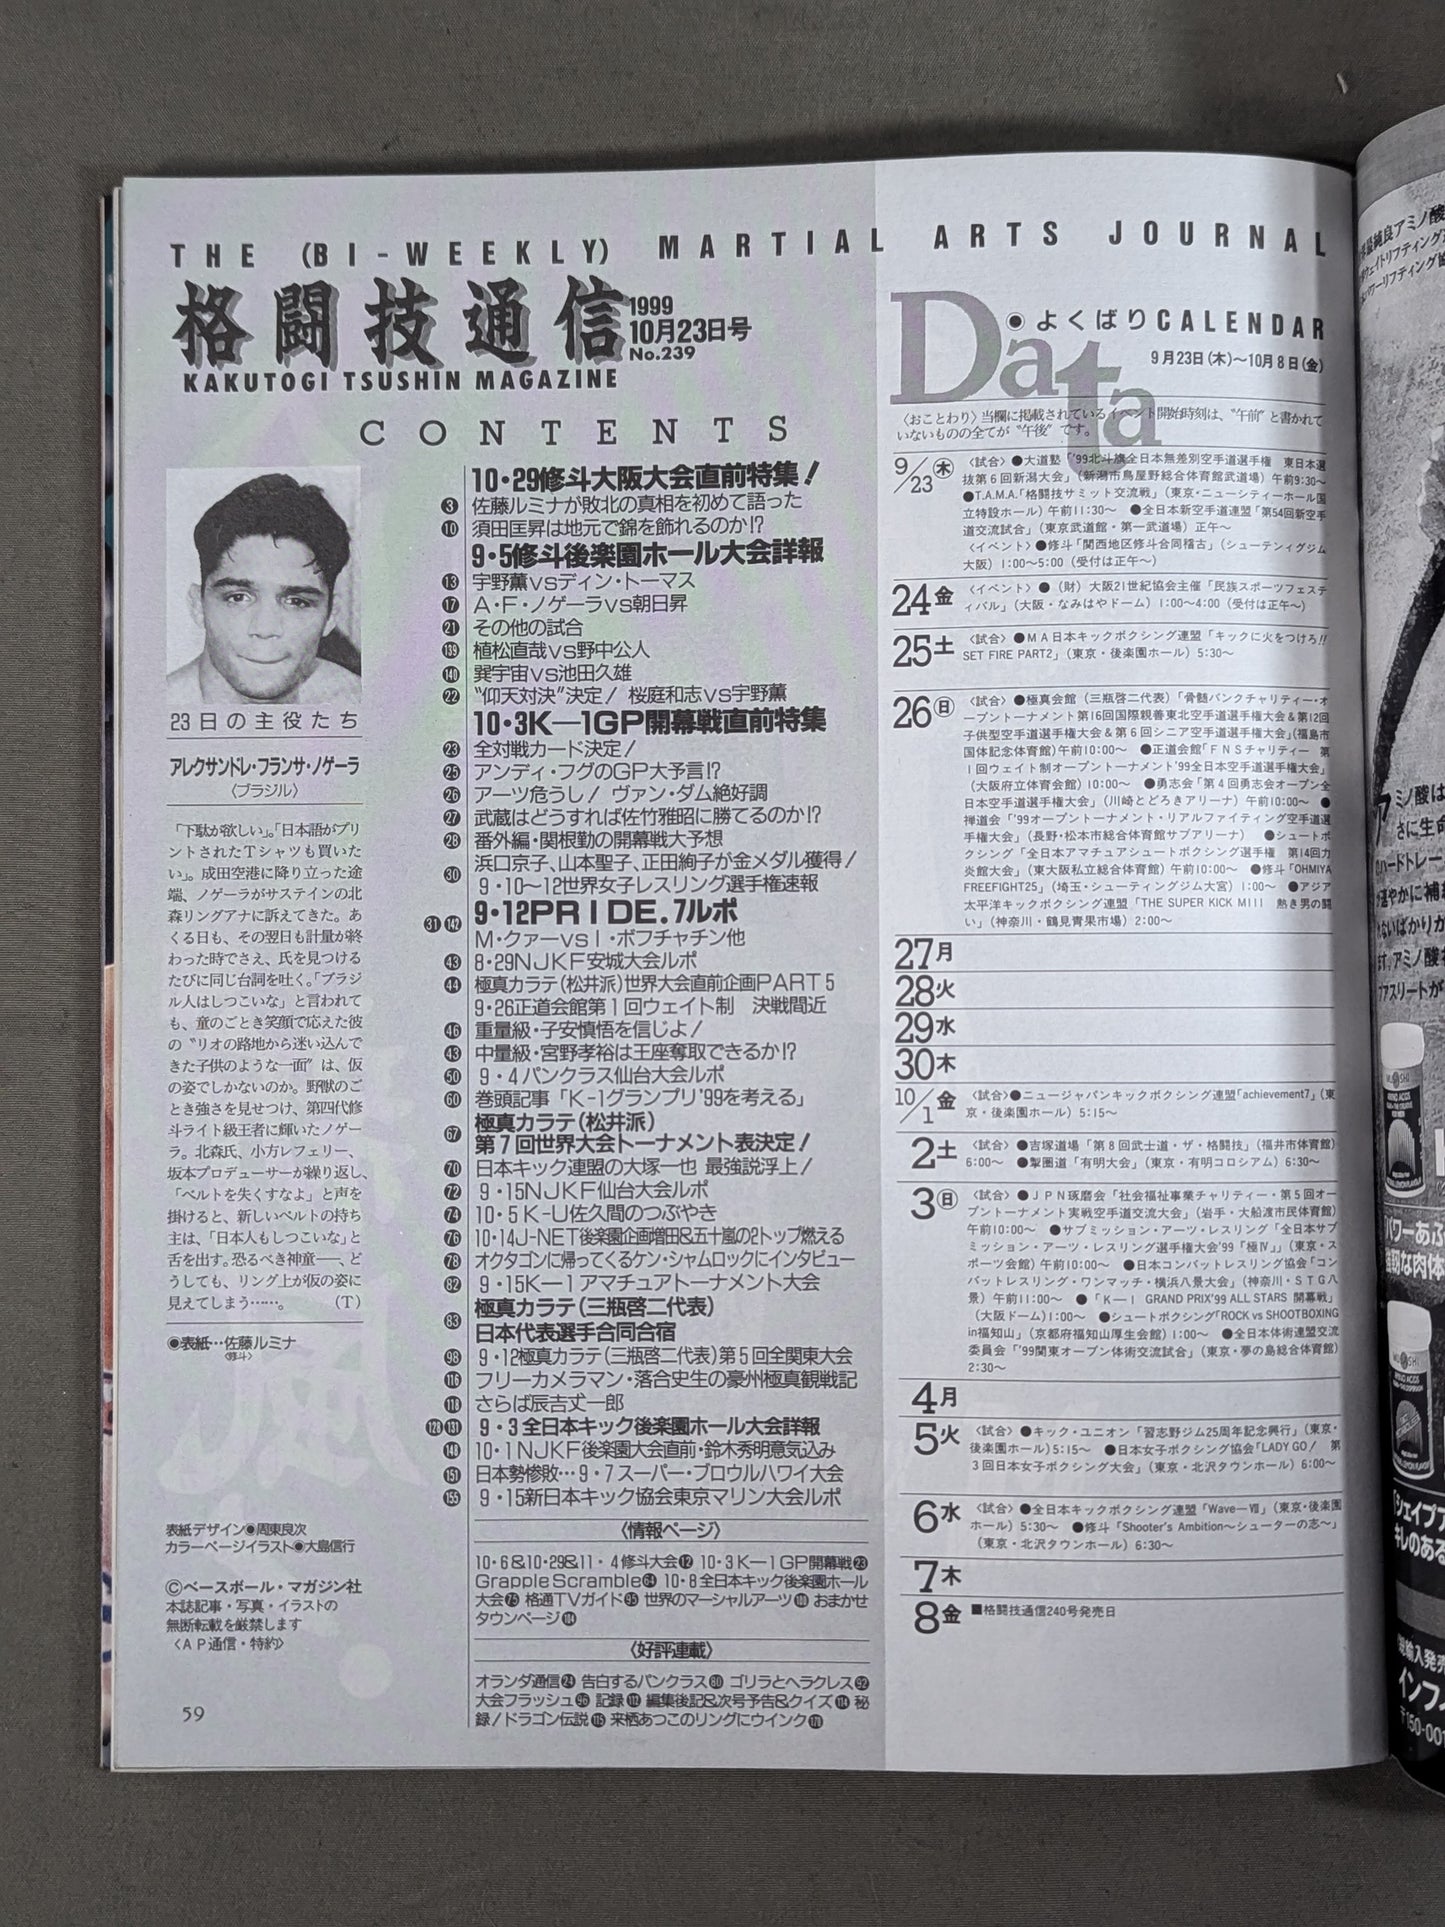 THE (BI-WEEKLY) MARTIAL ARTS JOURNAL
格闘技通信
1999
10月23日号
No.239
KAKUTOGI TSUSHIN MAGAZINE
CONTENTS
23日の主役たち
アレクサンドレ・フランサ・ノゲーラ
〈ブラジル〉
「下駄が欲しい」。「日本語がプリ
ントされたTシャツも買いた
い」。成田空港に降り立った途
端、ノゲーラがサステインの北
森リングアナに訴えてきた。あ
くる日も、その翌日も計量が終
わった時でさえ、氏を見つける
たびに同じ台詞を吐く。「ブラジ
ル人はしつこいな」と言われて
も、童のごとき笑顔で応えた彼
の〝リオの路地から迷い込んで
きた子供のような一面〟は、仮
の姿でしかないのか。野獣のご
とき強さを見せつけ、第四代修
斗ライト級王者に輝いたノゲー
ラ。北森氏、小方レフェリー、
坂本プロデューサーが繰り返し、
「ベルトを失くすなよ」と声を
掛けると、新しいベルトの持ち
主は、「日本人もしつこいな」と
舌を出す。恐るべき神童――、ど
うしても、リング上が仮の姿に
見えてしまう……。（T）
◉表紙…佐藤ルミナ
〈修斗〉
表紙デザイン◉周東良次
カラーページイラスト◉大島信行
Ⓒベースボール・マガジン社
本誌記事・写真・イラストの
無断転載を厳禁します
〈AP通信・特約〉
59
10・29修斗大阪大会直前特集！
3 佐藤ルミナが敗北の真相を初めて語った
10 須田匡昇は地元で錦を飾れるのか!?
9・5修斗後楽園ホール大会詳報
13 宇野薫vsディン・トーマス
17 A・F・ノゲーラvs朝日昇
21 その他の試合
139 植松直哉vs野中公人
140 巽宇宙vs池田久雄
22 “仰天対決”決定！ 桜庭和志vs宇野薫
10・3K―1GP開幕戦直前特集
23 全対戦カード決定！
25 アンディ・フグのGP大予言!?
26 アーツ危うし！ ヴァン・ダム絶好調
27 武蔵はどうすれば佐竹雅昭に勝てるのか!?
28 番外編・関根勤の開幕戦大予想
30 浜口京子、山本聖子、正田絢子が金メダル獲得！
9・10〜12世界女子レスリング選手権速報
31 142 9・12PRIDE.7ルポ
M・クァーvsI・ボフチャチン他
43 8・29NJKF安城大会ルポ
44 極真カラテ（松井派）世界大会直前企画PART5
9・26正道会館第1回ウェイト制 決戦間近
46 重量級・子安慎悟を信じよ！
43 中量級・宮野孝裕は王座奪取できるか!?
50 9・4パンクラス仙台大会ルポ
60 巻頭記事「K-1グランプリ'99を考える」
67 極真カラテ（松井派）
第7回世界大会トーナメント表決定！
70 日本キック連盟の大塚一也 最強説浮上！
72 9・15NJKF仙台大会ルポ
74 10・5K-U佐久間のつぶやき
76 10・14J-NET後楽園企画増田&五十嵐の2トップ燃える
78 オクタゴンに帰ってくるケン・シャムロックにインタビュー
82 9・15K―1アマチュアトーナメント大会
83 極真カラテ（三瓶啓二代表）
日本代表選手合同合宿
98 9・12極真カラテ（三瓶啓二代表）第5回全関東大会
116 フリーカメラマン・落合史生の豪州極真観戦記
118 さらば辰吉丈一郎
128 131 9・3全日本キック後楽園ホール大会詳報
148 10・1NJKF後楽園大会直前・鈴木秀明意気込み
151 日本勢惨敗…9・7スーパー・ブロウルハワイ大会
155 9・15新日本キック協会東京マリン大会ルポ
〈情報ページ〉
10・6&10・29&11・4修斗大会12 10・3K―1GP開幕戦23
Grapple Scramble64 10・8全日本キック後楽園ホール
大会75 格通TVガイド95 世界のマーシャルアーツ100 おまかせ
タウンページ104
〈好評連載〉
オランダ通信24 告白するパンクラス80 ゴリラとヘラクレス92
大会フラッシュ96 記録113 編集後記&次号予告&クイズ114 秘
録！ドラゴン伝説115 来栖あつこのリングにウインク170
Data
◉よくばりCALENDAR
9月23日（木）〜10月8日（金）
〈おことわり〉当欄に掲載されているイベント開始時刻は、〝午前〟と書かれて
いないものの全てが〝午後〟です。
9/23木 〈試合〉●大道塾「'99北斗旗全日本無差別空手道選手権 東日本選
抜第6回新潟大会」（新潟市鳥屋野総合体育館武道場）午前9:30〜
●T.A.M.A.「格闘技サミット交流戦」（東京・ニューシティーホール国
立特設ホール）午前11:30〜 ●全日本新空手道連盟「第54回新空手
道交流試合」（東京武道館・第一武道場）正午〜
〈イベント〉●修斗「関西地区修斗合同稽古」（シューティングジム
大阪）1:00〜5:00（受付は正午〜）
24金 〈イベント〉●（財）大阪21世紀協会主催「民族スポーツフェステ
ィバル」（大阪・なみはやドーム）1:00〜4:00（受付は正午〜）
25土 〈試合〉●MA日本キックボクシング連盟「キックに火をつけろ!!
SET FIRE PART2」（東京・後楽園ホール）5:30〜
26日 〈試合〉●極真会館（三瓶啓二代表）「骨髄バンクチャリティー・オ
ープントーナメント第16回国際親善東北空手道選手権大会&第12回
子供型空手道選手権大会&第6回シニア空手道選手権大会」（福島市
国体記念体育館）午前10:00〜 ●正道会館「FNSチャリティー 第
1回ウェイト制オープントーナメント'99全日本空手道選手権大会」
（大阪府立体育会館）10:00〜 ●勇志会「第4回勇志会オープン全
日本空手道選手権大会」（川崎とどろきアリーナ）午前10:00〜 ●
禅道会「'99オープントーナメント・リアルファイティング空手道選
手権大会」（長野・松本市総合体育館サブアリーナ） ●シュートボ
クシング「全日本アマチュアシュートボクシング選手権 第14回力
炎館大会」（東大阪私立総合体育館）午前10:00〜 ●修斗「OHMIYA
FREEFIGHT25」（埼玉・シューティングジム大宮）1:00〜 ●アジア
太平洋キックボクシング連盟「THE SUPER KICK MIII 熱き男の闘
い」（神奈川・鶴見青果市場）2:00〜
27月
28火
29水
30木
10/1金 〈試合〉●ニュージャパンキックボクシング連盟「achievement7」（東
京・後楽園ホール）5:15〜
2土 〈試合〉●吉塚道場「第8回武士道・ザ・格闘技」（福井市体育館）
6:00〜 ●掣圏道「有明大会」（東京・有明コロシアム）6:30〜
3日 〈試合〉●JPN琢磨会「社会福祉事業チャリティー・第5回オー
プントーナメント実戦空手道交流大会」（岩手・大船渡市民体育館）
午前10:00〜 ●サブミッション・アーツ・レスリング「全日本サブ
ミッション・アーツ・レスリング選手権大会'99「極Ⅳ」」（東京・ス
ポーツ会館）午前10:00〜 ●日本コンバットレスリング協会「コン
バットレスリング・ワンマッチ・横浜八景大会」（神奈川・STG八
景）午前11:00〜 ●「K―1 GRAND PRIX'99 ALL STARS 開幕戦」
（大阪ドーム）1:00〜 ●シュートボクシング「ROCK vs SHOOTBOXING
in福知山」（京都府福知山厚生会館）1:00〜 ●全日本体術連盟交流
委員会「'99関東オープン体術交流試合」（東京・夢の島総合体育館）
2:30〜
4月
5火 〈試合〉●キック・ユニオン「習志野ジム25周年記念興行」（東京・
後楽園ホール）5:15〜 ●日本女子ボクシング協会「LADY GO！ 第
3回日本女子ボクシング大会」（東京・北沢タウンホール）6:00〜
6水 〈試合〉●全日本キックボクシング連盟「Wave―Ⅶ」（東京・後楽園
ホール）5:30〜 ●修斗「Shooter's Ambition〜シューターの志〜」
（東京・北沢タウンホール）6:30〜
7木
8金 ■格闘技通信240号発売日